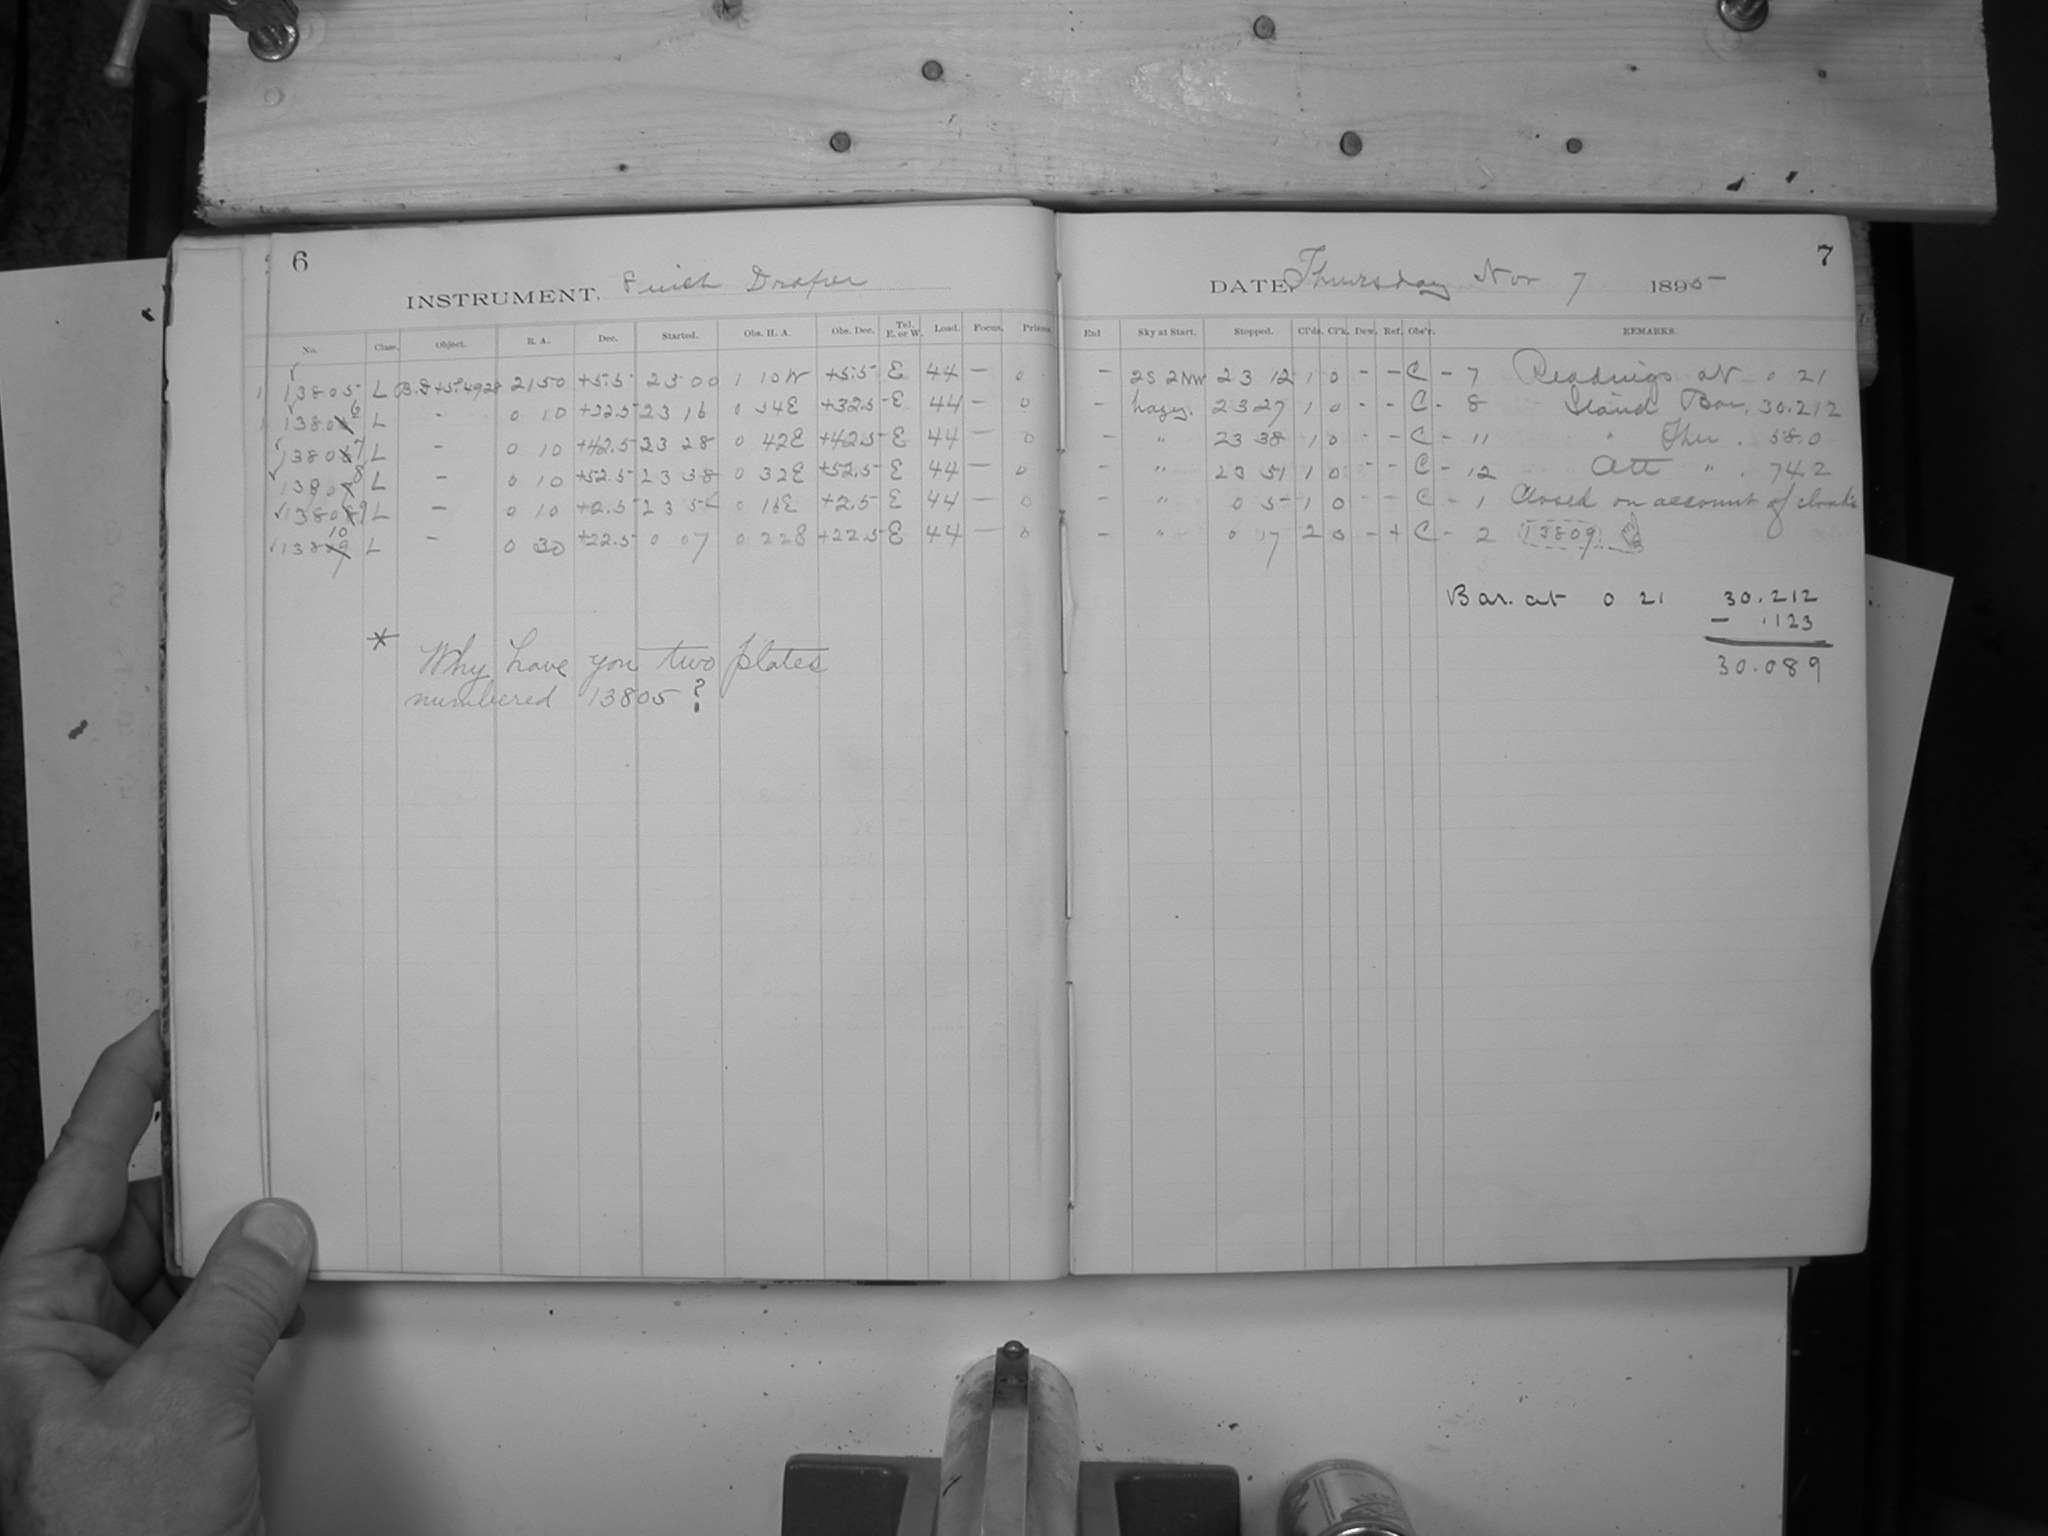 6
INSTRUMENT. 8 inch Draper
No. Class. Object. R. A. Dec. Started. Obs. H. A. Obs. Dec. Tel. E. or W. Load. Focus. Prisms
13805 L B.D+5°4928 2150 +5.5 23 00 1 10W +5.5 E 44 — 0
13806 L - 0 10 +32.5 23 16 0 54E +32.5 E 44 — 0
13807 L - 0 10 +42.5 23 28 0 42E +42.5 E 44 — 0
13808 L - 0 10 +52.5 23 38 0 32E +52.5 E 44 — 0
13809 L - 0 10 +2.5 23 54 0 16E +2.5 E 44 — 0
13810 L - 0 30 +22.5 0 07 0 22E +22.5 E 44 — 0
* Why have you two plates
numbered 13805?
7
DATE, Thursday Nov 7 1895
Enl Sky at Start. Stopped. Cl'ds. Cl'k. Dew. Ref. Obs'r. REMARKS.
- 2S 2NW 23 12 1 0 - - C - 7 Readings at 0 21
- hazy. 23 27 1 0 - - C - 8 Stand Bar. 30.212
- " 23 38 1 0 - - C - 11 " Ther. 58.0
- " 23 51 1 0 - - C - 12 Att " . 74.2
- " 0 5 1 0 - - C - 1 Closed on account of clouds
- " 0 17 2 0 - + C - 2 13809
Bar. at 0 21 30.212
- .123
30.089